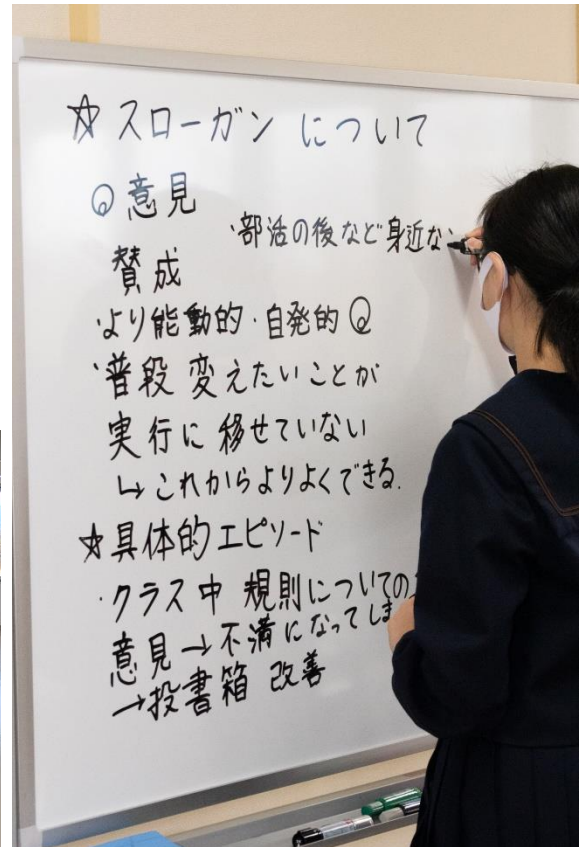 ☆スローガンについて
◎意見
・部活の後など身近な
賛成
・より能動的・自発的◎
・普段変えたいことが
実行に移せていない
↳これからよりよくできる.
☆具体的エピソード
・クラス中 規則についての
意見→不満になってしま
→投書箱 改善